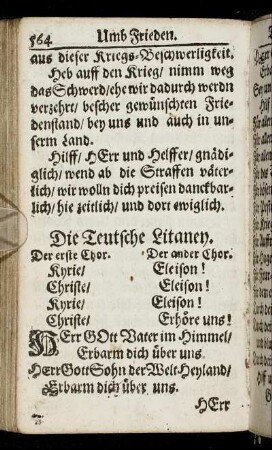 564 Umb Frieden.
aus dieser Kriegs-Beschwerligkeit.
Heb auff den Krieg/ nimm weg
das Schwerd/ehe wir dadurch werdn
verzehrt/ bescher gewünschten Frie-
denstand/ bey uns und auch in un-
serm Land.
Hilff/ HErr und Helffer/ gnädi-
glich/ wend ab die Straffen väter-
lich/ wir wolln dich preisen danckbar-
lich/ hie zeitlich/ und dort ewiglich.
Die Teutsche Litaney.
Der erste Chor. Der ander Chor.
Kyrie/ Eleison!
Christe/ Eleison!
Kyrie/ Eleison!
Christe/ Erhöre uns!
HErr GOtt Vater im Himmel/
Erbarm dich über uns.
HErr Gott Sohn der Welt Heyland/
Erbarm dich über uns.
HErr